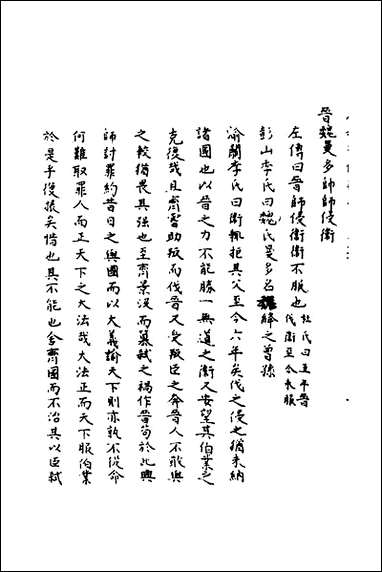 晉魏曼多帥師侵衛
左傳曰晉師侵衛衛不服也杜氏曰五年晉伐衛至今未服
彭山季氏曰魏氏曼多名絳之曾孫
渝關李氏曰衛輒拒其父至今六年矣伐之侵之猶未納
諸國也以晉之力不能勝一無道之衛又安望其伯業之
克復哉且齊嘗助叛而伐晉又受叛臣之奔晉人不敢與
之較猶畏其強也至齊景沒而纂弒之禍作晉苟於此興
師討罪約昔日之與國而以大義諭天下則亦孰不從命
何難取罪人而正天下之大法哉大法正而天下服伯業
於是乎復振矣惜也其不能也舍齊國而不治其以臣弒